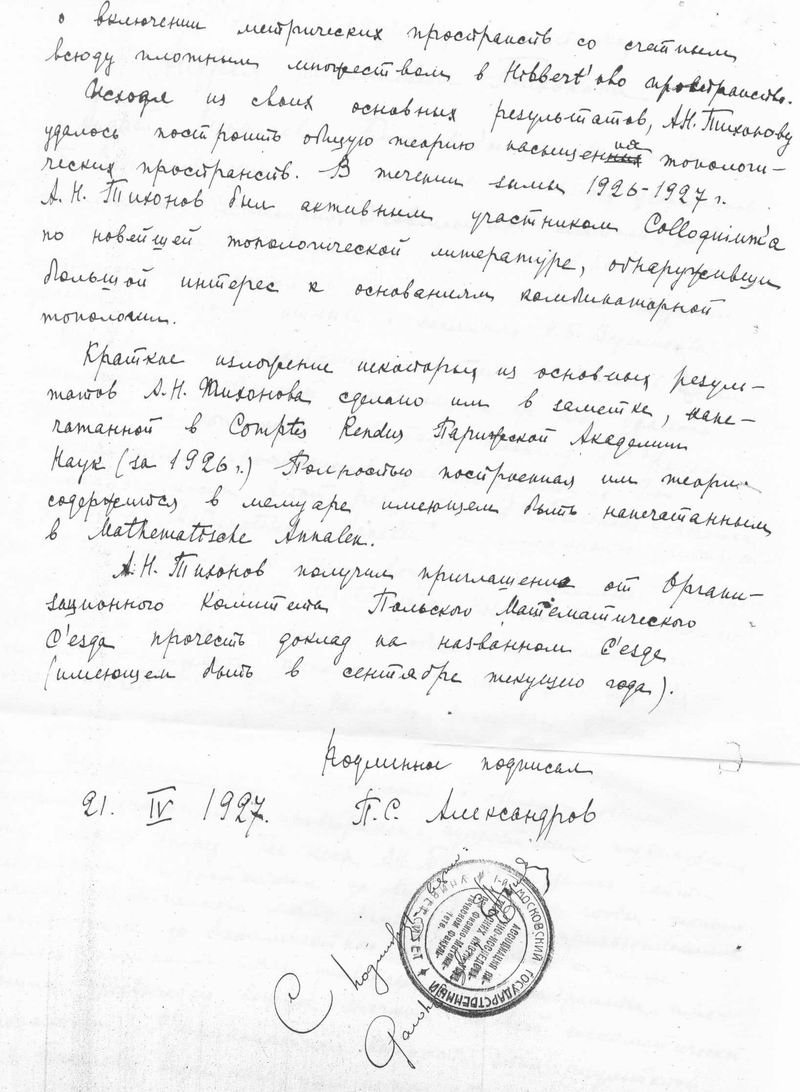 о включении метрических пространств со счетным
всюду плотным множеством в Hilbert'ово пространство.
Исходя из своих основных результатов, А.Н. Тихонову
удалось построить общую теорию насыщенных топологи-
ческих пространств. В течении зимы 1926-1927 г.
А.Н. Тихонов был активным участником Colloquium'а
по новейшей топологической литературе, обнаруживши
большой интерес к основаниям комбинаторной
топологии.
Краткое изложение некоторых из основных резуль-
татов А.Н. Тихонова сделано им в заметке, напе-
чатанной в Comptes Rendus Парижской Академии
Наук (за 1926 г.) Полностью построенная им теория
содержится в мемуаре имеющем быть напечатанным
в Mathematische Annalen.
А.Н. Тихонов получил приглашение от Органи-
зационного Комитета Польского Математического
С'езда прочесть доклад на названном С'езде
(имеющем быть в сентябре текущего года).
Подлинное подписал
21. IV 1927. П.С. Александров
МОСКОВСКИЙ ГОСУДАРСТВЕННЫЙ УНИВЕРСИТЕТ
С подлин